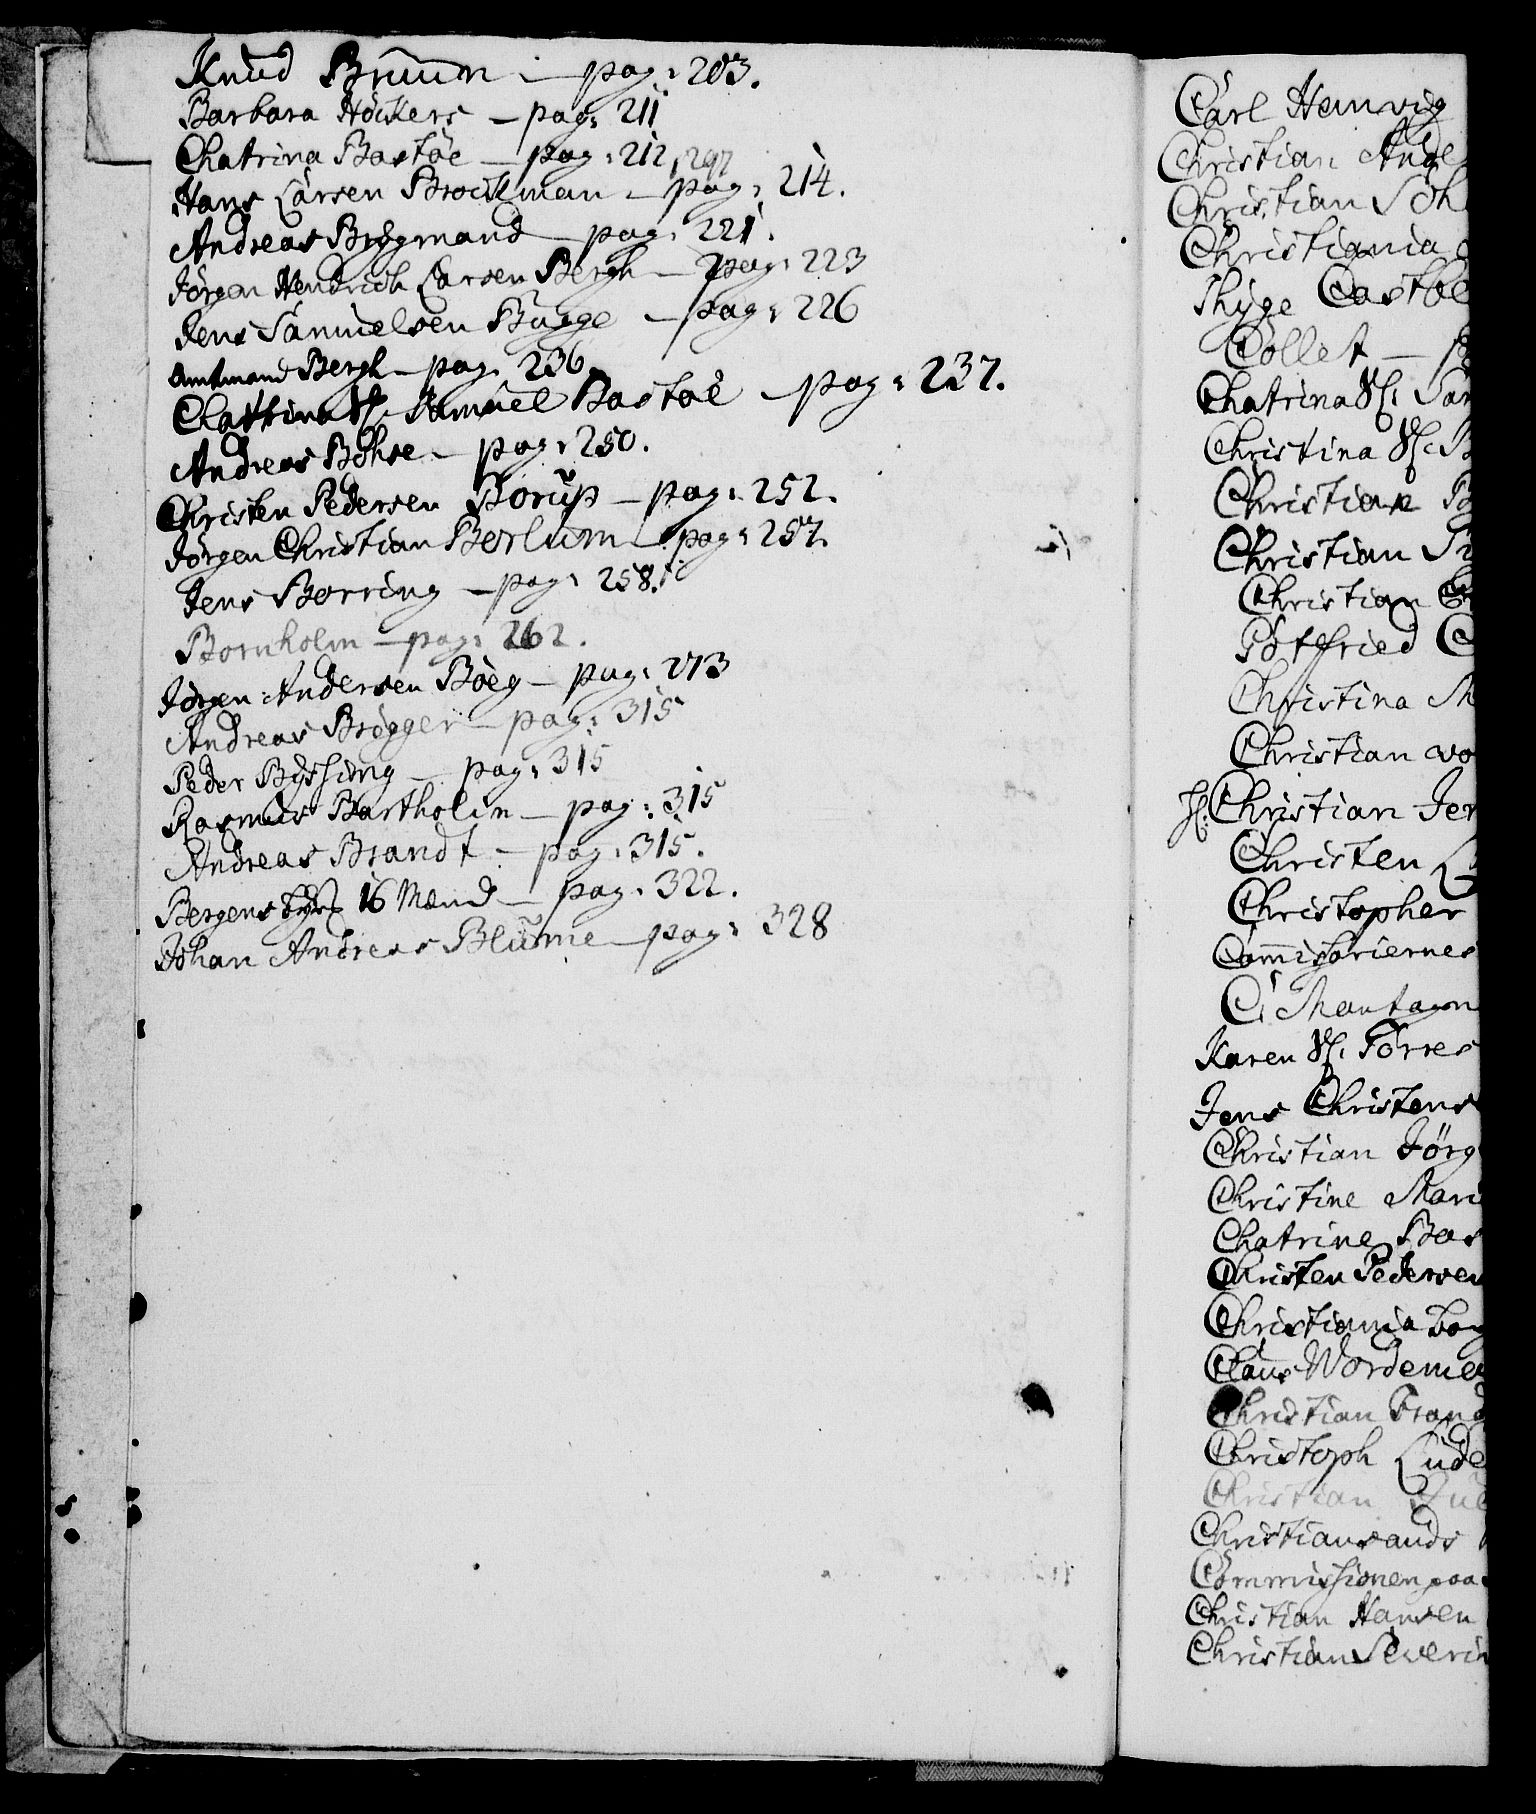 Knud Bruun – pag: 203.
Barbara Höckers – pag: 211
Chatrina Bastöe – pag: 212, 297
Hans Larsen Brockman – pag: 214.
Andreas Bryggmand – pag: 221.
Jörgen Hendrich Larsen Bergh – pag: 223
Jens Samuelsen Bugge – pag: 226
Amtmand Bergh – pag: 236.
Chatrina Sl: Samuel Bastöe – pag: 237.
Andreas Böhse – pag: 250.
Christen Pedersen Borup – pag: 252.
Jörgen Christian Berlum – pag: 257.
Jens Borring – pag: 258.
Bornholm – pag: 262.
Jörgen Andersen Böeg – pag: 273
Andreas Brögger – pag: 315
Peder Bysching – pag: 315
Rasmus Bartholin – pag: 315
Andreas Brandt – pag: 315.
Bergens 16 Mænd – pag: 322.
Johan Andreas Blüme – pag: 328
Carl Hemvig
Christian Ande
Christian Söh
Christiania
Thyge Castbe
Collet – p
Chatrina Sl: Sam
Christina Sl: B
Christian B
Christian
Christian
Gotfried C
Christina M
Christian vo
Christian Jen
Christen L
Christopher
Commissariernes
C: Mantagn
Karen Sl: Törres
Jens Christens
Christian Jörg
Christine Mari
Chatrine Bas
Christen Pedersen
Christiania
Claus Wordemey
Christian Frand
Christoph Lude
Christian Jul
Christiansands
Commissionen paa
Christian Hansen
Christian Severin